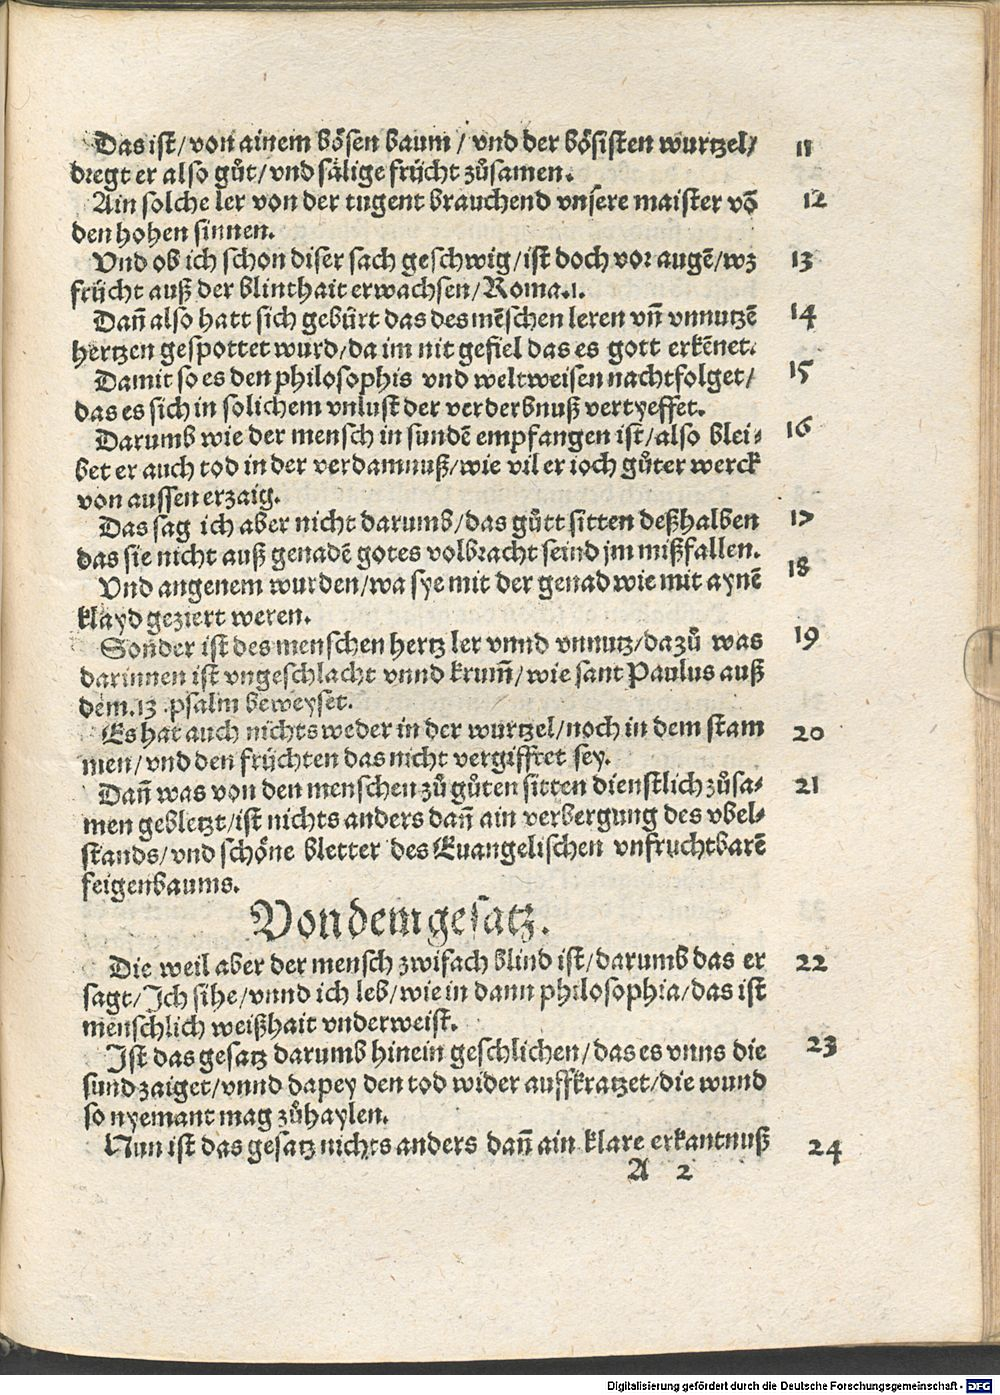 Das ist/ von ainem bösen baum / vnd der bösisten wurtzel/ 11
dregt er also gůt/ vnd sälige frücht zůsamen.
Ain solche ler von der tugent brauchend vnsere maister võ 12
den hohen sinnen.
Vnd ob ich schon diser sach geschwig/ ist doch vor augẽ/ wz 13
frücht auß der blinthait erwachsen/ Roma.1.
Dañ also hatt sich gebürt das des mẽschen leren vñ vnnutzẽ 14
hertzen gespottet wurd/ da im nit gefiel das es gott erkẽnet.
Damit so es den philosophis vnd weltweisen nachtfolget/ 15
das es sich in solichem vnlust der verderbnuß vertyeffet.
Darumb wie der mensch in sundẽ empfangen ist/ also blei- 16
bet er auch tod in der verdamnuß/ wie vil er ioch gůter werck
von aussen erzaig.
Das sag ich aber nicht darumb/ das gůtt sitten deßhalben 17
das sie nicht auß genadẽ gotes volbracht seind jm mißfallen.
Vnd angenem wurden/ wa sye mit der genad wie mit aynẽ 18
klayd geziert weren.
Sonder ist des menschen hertz ler vnnd vnnutz/ dazů was 19
darinnen ist vngeschlacht vnnd krum̃/ wie sant Paulus auß
dem .13. psalm beweyset.
Es hat auch nichts weder in der wurtzel/ noch in dem stam 20
men/ vnd den früchten das nicht vergifftet sey.
Dañ was von den menschen zů gůten sitten dienstlich zůsa- 21
men gebletzt/ ist nichts anders dañ ain verbergung des vbel-
stands/ vnd schöne bletter des Euangelischen vnfruchtbarẽ
feigenbaums.
Von dem gesatz.
Die weil aber der mensch zwifach blind ist/ darumb das er 22
sagt/ Ich sihe/ vnnd ich leb/ wie in dann philosophia/ das ist
menschlich weißhait vnderweist.
Ist das gesatz darumb hinein geschlichen/ das es vnns die 23
sund zaiget/ vnnd dapey den tod wider auffkratzet/ die wund
so nyemant mag zůhaylen.
Nun ist das gesatz nichts anders dañ ain klare erkantnuß 24
A 2
Digitalisierung gefördert durch die Deutsche Forschungsgemeinschaft - DFG